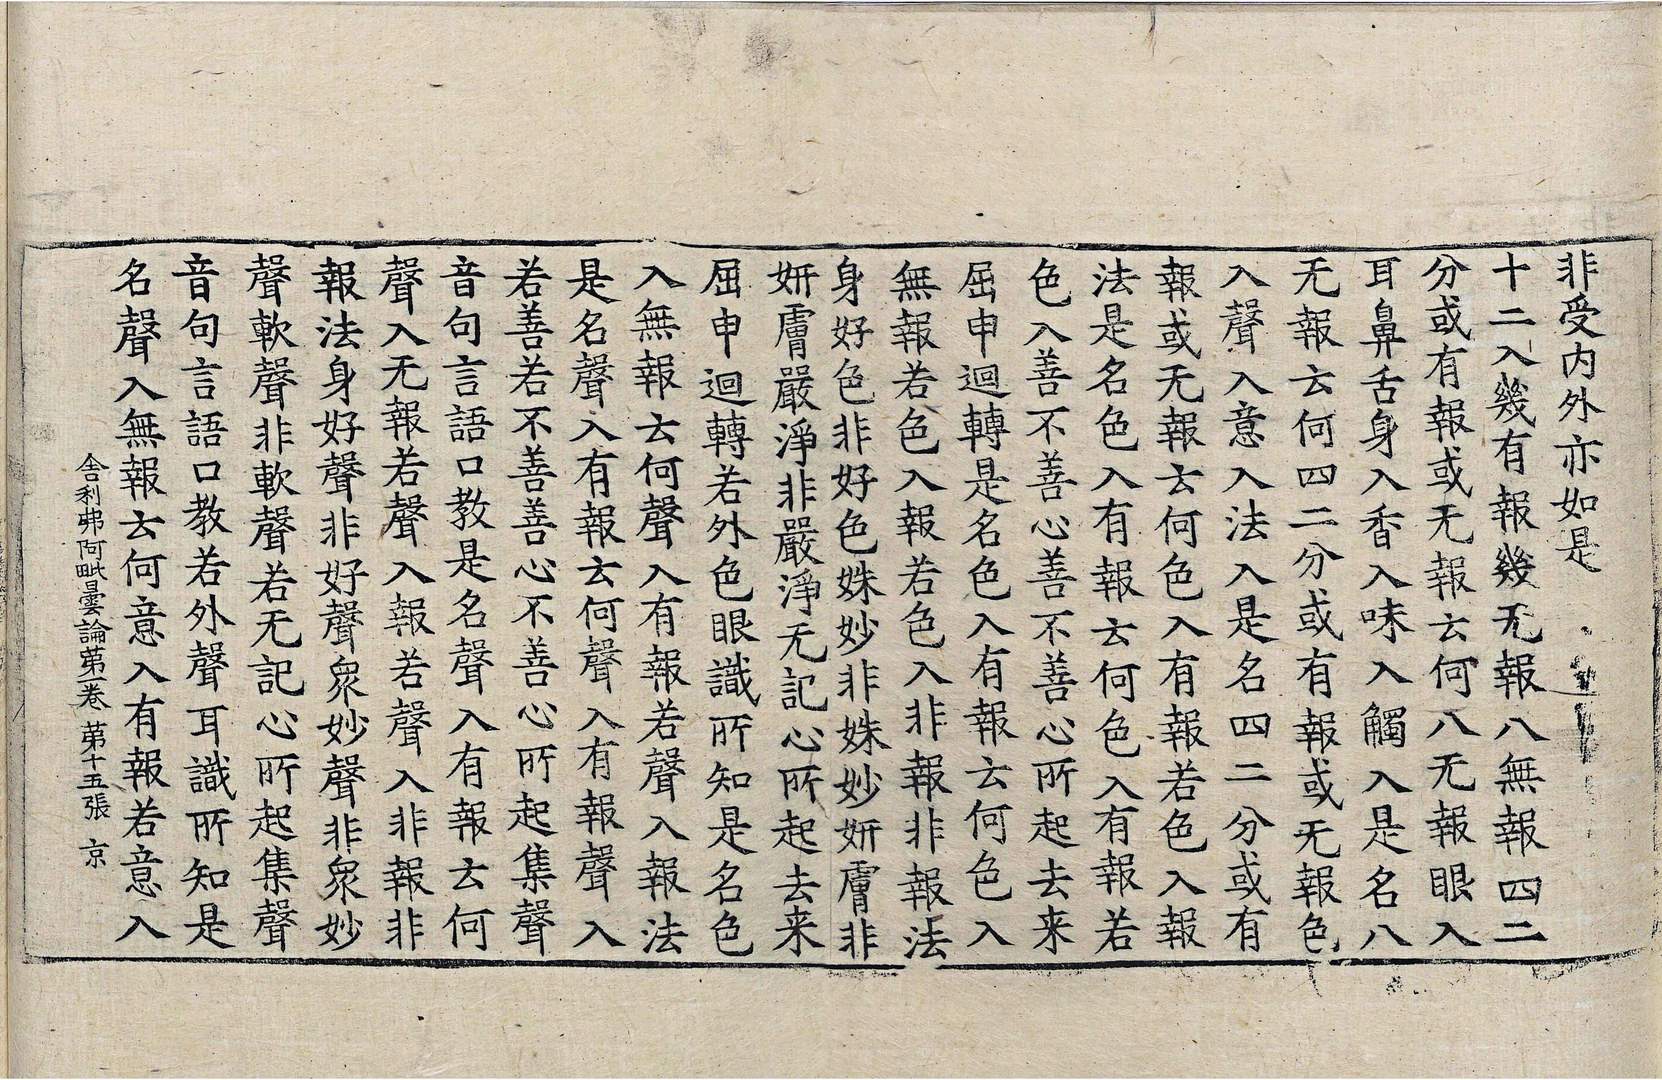 非受內外亦如是
十二入幾有報幾无報八無報四二
分或有報或无報云何八无報眼入
耳鼻舌身入香入味入觸入是名八
无報云何四二分或有報或无報色
入聲入意入法入是名四二分或有
報或无報云何色入有報若色入報
法是名色入有報云何色入有報若
色入善不善心善不善心所起去来
屈申迴轉是名色入有報云何色入
無報若色入報若色入非報非報法
身好色非好色姝妙非姝妙妍膚非
妍膚嚴淨非嚴淨无記心所起去来
屈申迴轉若外色眼識所知是名色
入無報云何聲入有報若聲入報法
是名聲入有報云何聲入有報聲入
若善若不善善心不善心所起集聲
音句言語口教是名聲入有報云何
聲入无報若聲入報若聲入非報非
報法身好聲非好聲衆妙聲非衆妙
聲軟聲非軟聲若无記心所起集聲
音句言語口教若外聲耳識所知是
名聲入無報云何意入有報若意入
舍利弗阿毗曇論第一卷 第十五張 京